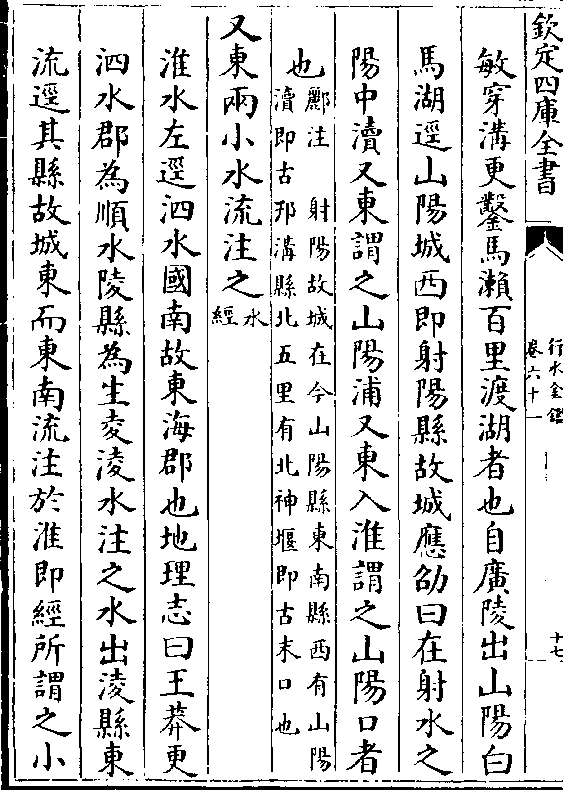 欽定四庫全書
行水金鑑
卷六十一
十七
敏穿溝更鑿馬瀨百里渡湖者也自廣陵出山陽白
馬湖逕山陽城西即射陽縣故城應劭曰在射水之
陽中瀆又東謂之山陽浦又東入淮謂之山陽口者
也酈注 射陽故城在今山陽縣東南縣西有山陽
瀆即古邗溝縣北五里有北神堰即古末口也
又東兩小水流注之水
經
淮水左逕泗水國南故東海郡也地理志曰王莽更
泗水郡為順水陵縣為生夌淩水注之水出淩縣東
流逕其縣故城東而東南流注於淮即經所謂之小